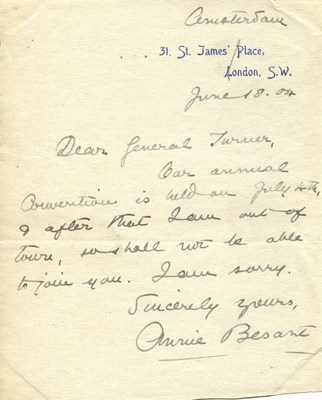 Amsterdam
31, St. James' Place,
London, S.W.
June 18. 04
Dear General Turner,
Our annual
Convention is held on July 4th,
& after that I am out of
town, so shall not be able
to join you. I am sorry.
Sincerely yours,
Annie Besant